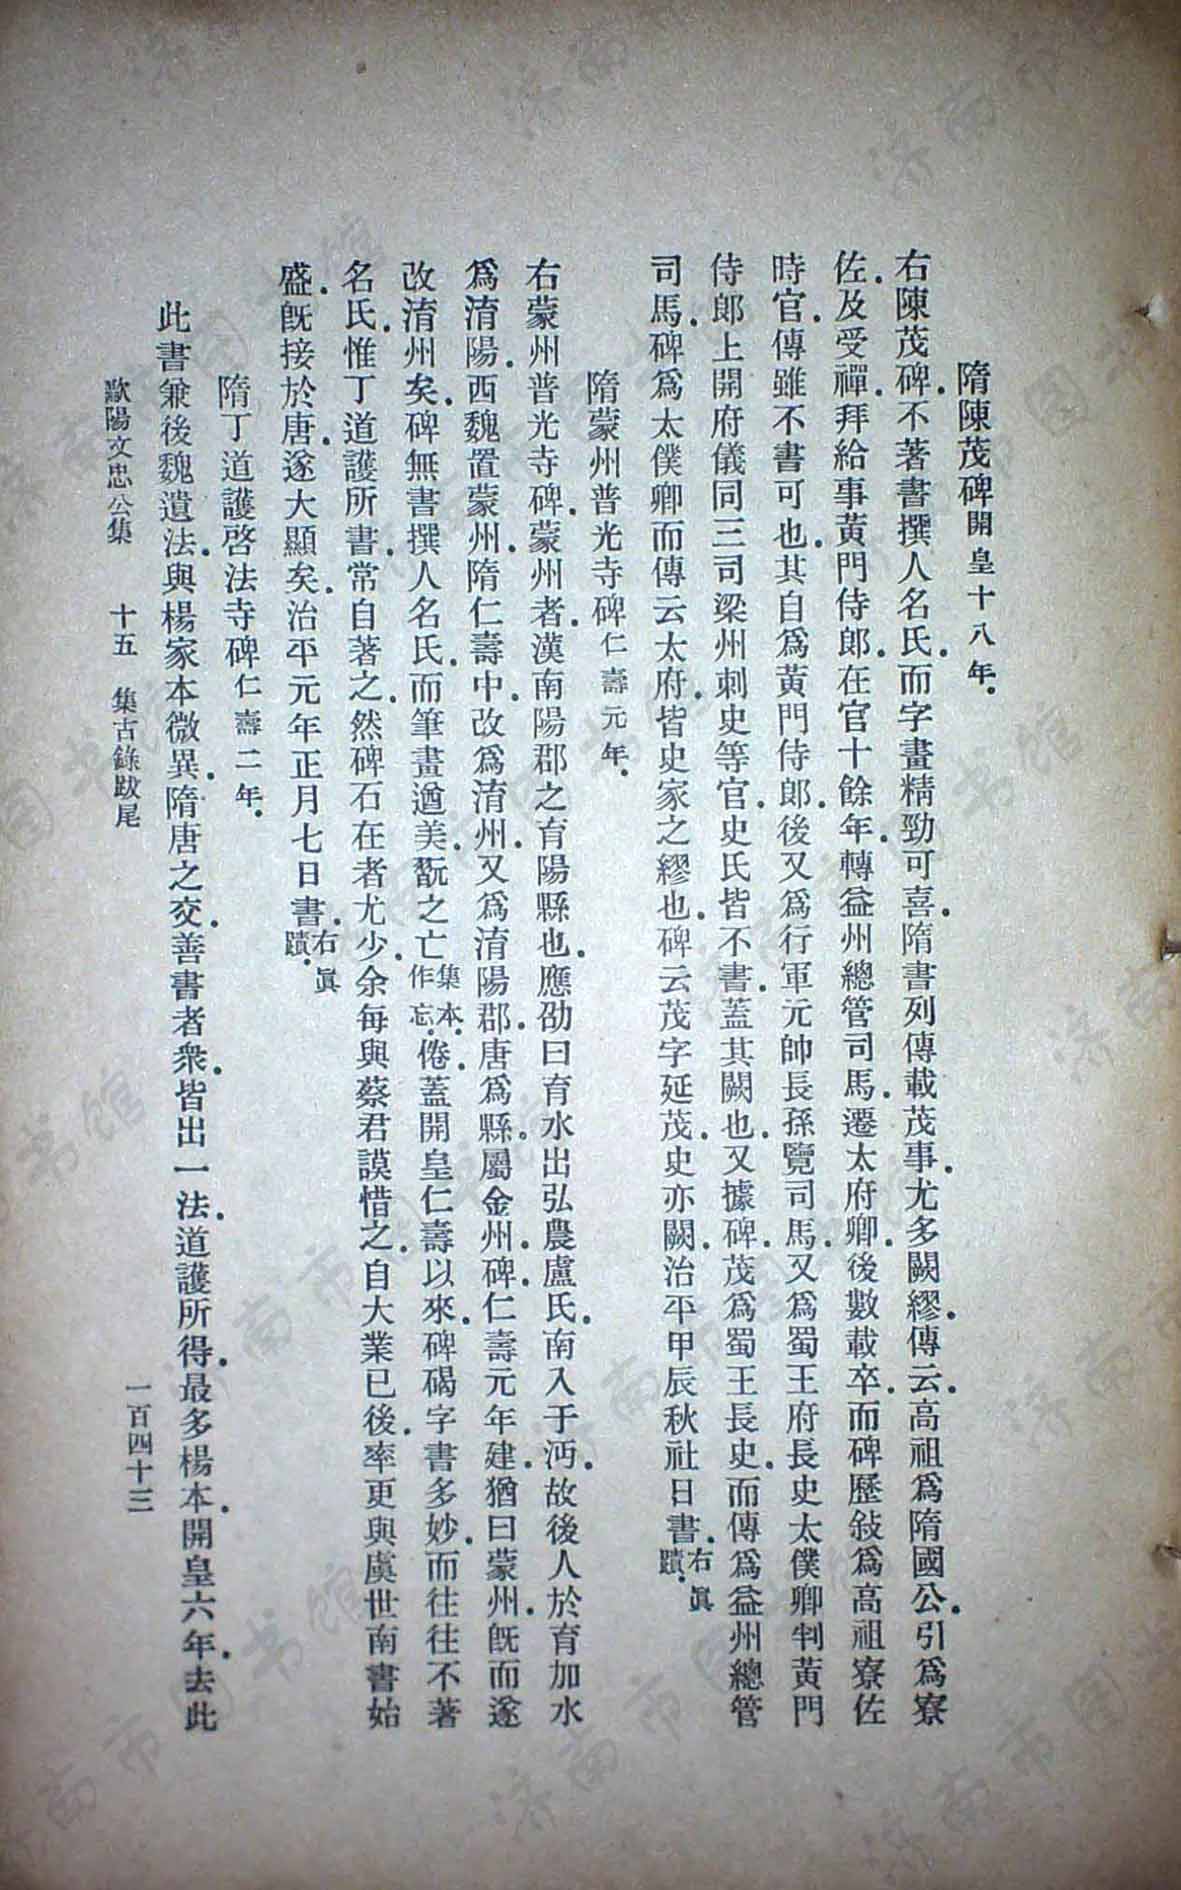 隋陳茂碑開皇十八年.
右陳茂碑.不著書撰人名氏.而字畫精勁可喜.隋書列傳載茂事.尤多闕繆.傳云.高祖爲隋國公.引爲寮
佐.及受禪.拜給事黃門侍郎.在官十餘年.轉益州總管司馬.遷太府卿.後數載卒.而碑歷敍爲高祖寮佐
時官.傳雖不書可也.其自爲黃門侍郎.後又爲行軍元帥長孫覽司馬.又爲蜀王府長史太僕卿判黃門
侍郎上開府儀同三司梁州刺史等官.史氏皆不書.蓋其闕也.又據碑.茂爲蜀王長史.而傳爲益州總管
司馬.碑爲太僕卿而傳云太府.皆史家之繆也.碑云茂字延茂.史亦闕.治平甲辰秋社日書.右眞蹟.
隋蒙州普光寺碑仁壽元年.
右蒙州普光寺碑.蒙州者.漢南陽郡之育陽縣也.應劭曰育水出弘農盧氏.南入于沔.故後人於育加水
爲淯陽.西魏置蒙州.隋仁壽中.改爲淯州.又爲淯陽郡.唐爲縣.屬金州.碑.仁壽元年建.猶曰蒙州.旣而遂
改淯州矣.碑無書撰人名氏.而筆畫遒美.翫之亡集本作忘.倦.蓋開皇仁壽以來.碑碣字書多妙.而往往不著
名氏.惟丁道護所書.常自著之.然碑石在者尤少.余每與蔡君謨惜之.自大業已後.率更與虞世南書始
盛.旣接於唐.遂大顯矣.治平元年正月七日書.右眞蹟.
隋丁道護啓法寺碑仁壽二年.
此書兼後魏遺法.與楊家本微異.隋唐之交.善書者衆.皆出一法.道護所得.最多楊本.開皇六年.去此
歐陽文忠公集 十五 集古錄跋尾 一百四十三